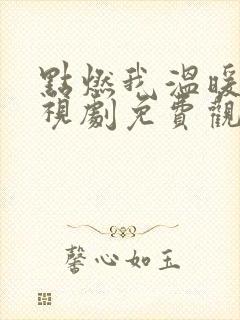 點燃我,溫暖
視劇免費觀
馨心如玉